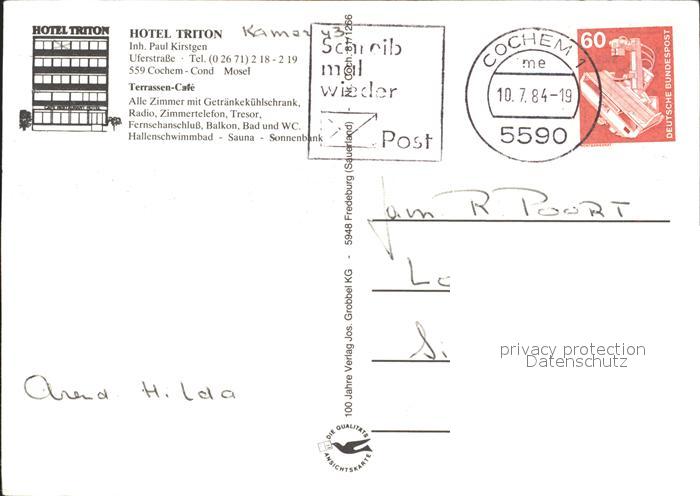 HOTEL TRITON
HOTEL TRITON
Kamer 43
Inh. Paul Kirstgen
Uferstraße · Tel. (0 26 71) 2 18 - 2 19
559 Cochem - Cond Mosel
Terrassen-Café
Alle Zimmer mit Getränkekühlschrank,
Radio, Zimmertelefon, Tresor,
Fernsehanschluß, Balkon, Bad und WC.
Hallenschwimmbad - Sauna - Sonnenbank
Schreib
mal
wieder
Post
COCHEM 1
me
10.7.84-19
5590
60
DEUTSCHE BUNDESPOST
100 Jahre Verlag Jos. Grobbel KG - 5948 Fredeburg (Sauerland)
R. POORT
privacy protection
Datenschutz
Arend H. Ida
DIE QUALITÄTS
ANSICHTSKARTE